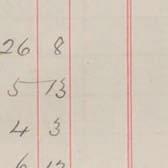 26 8
5 13
4 3
6 13